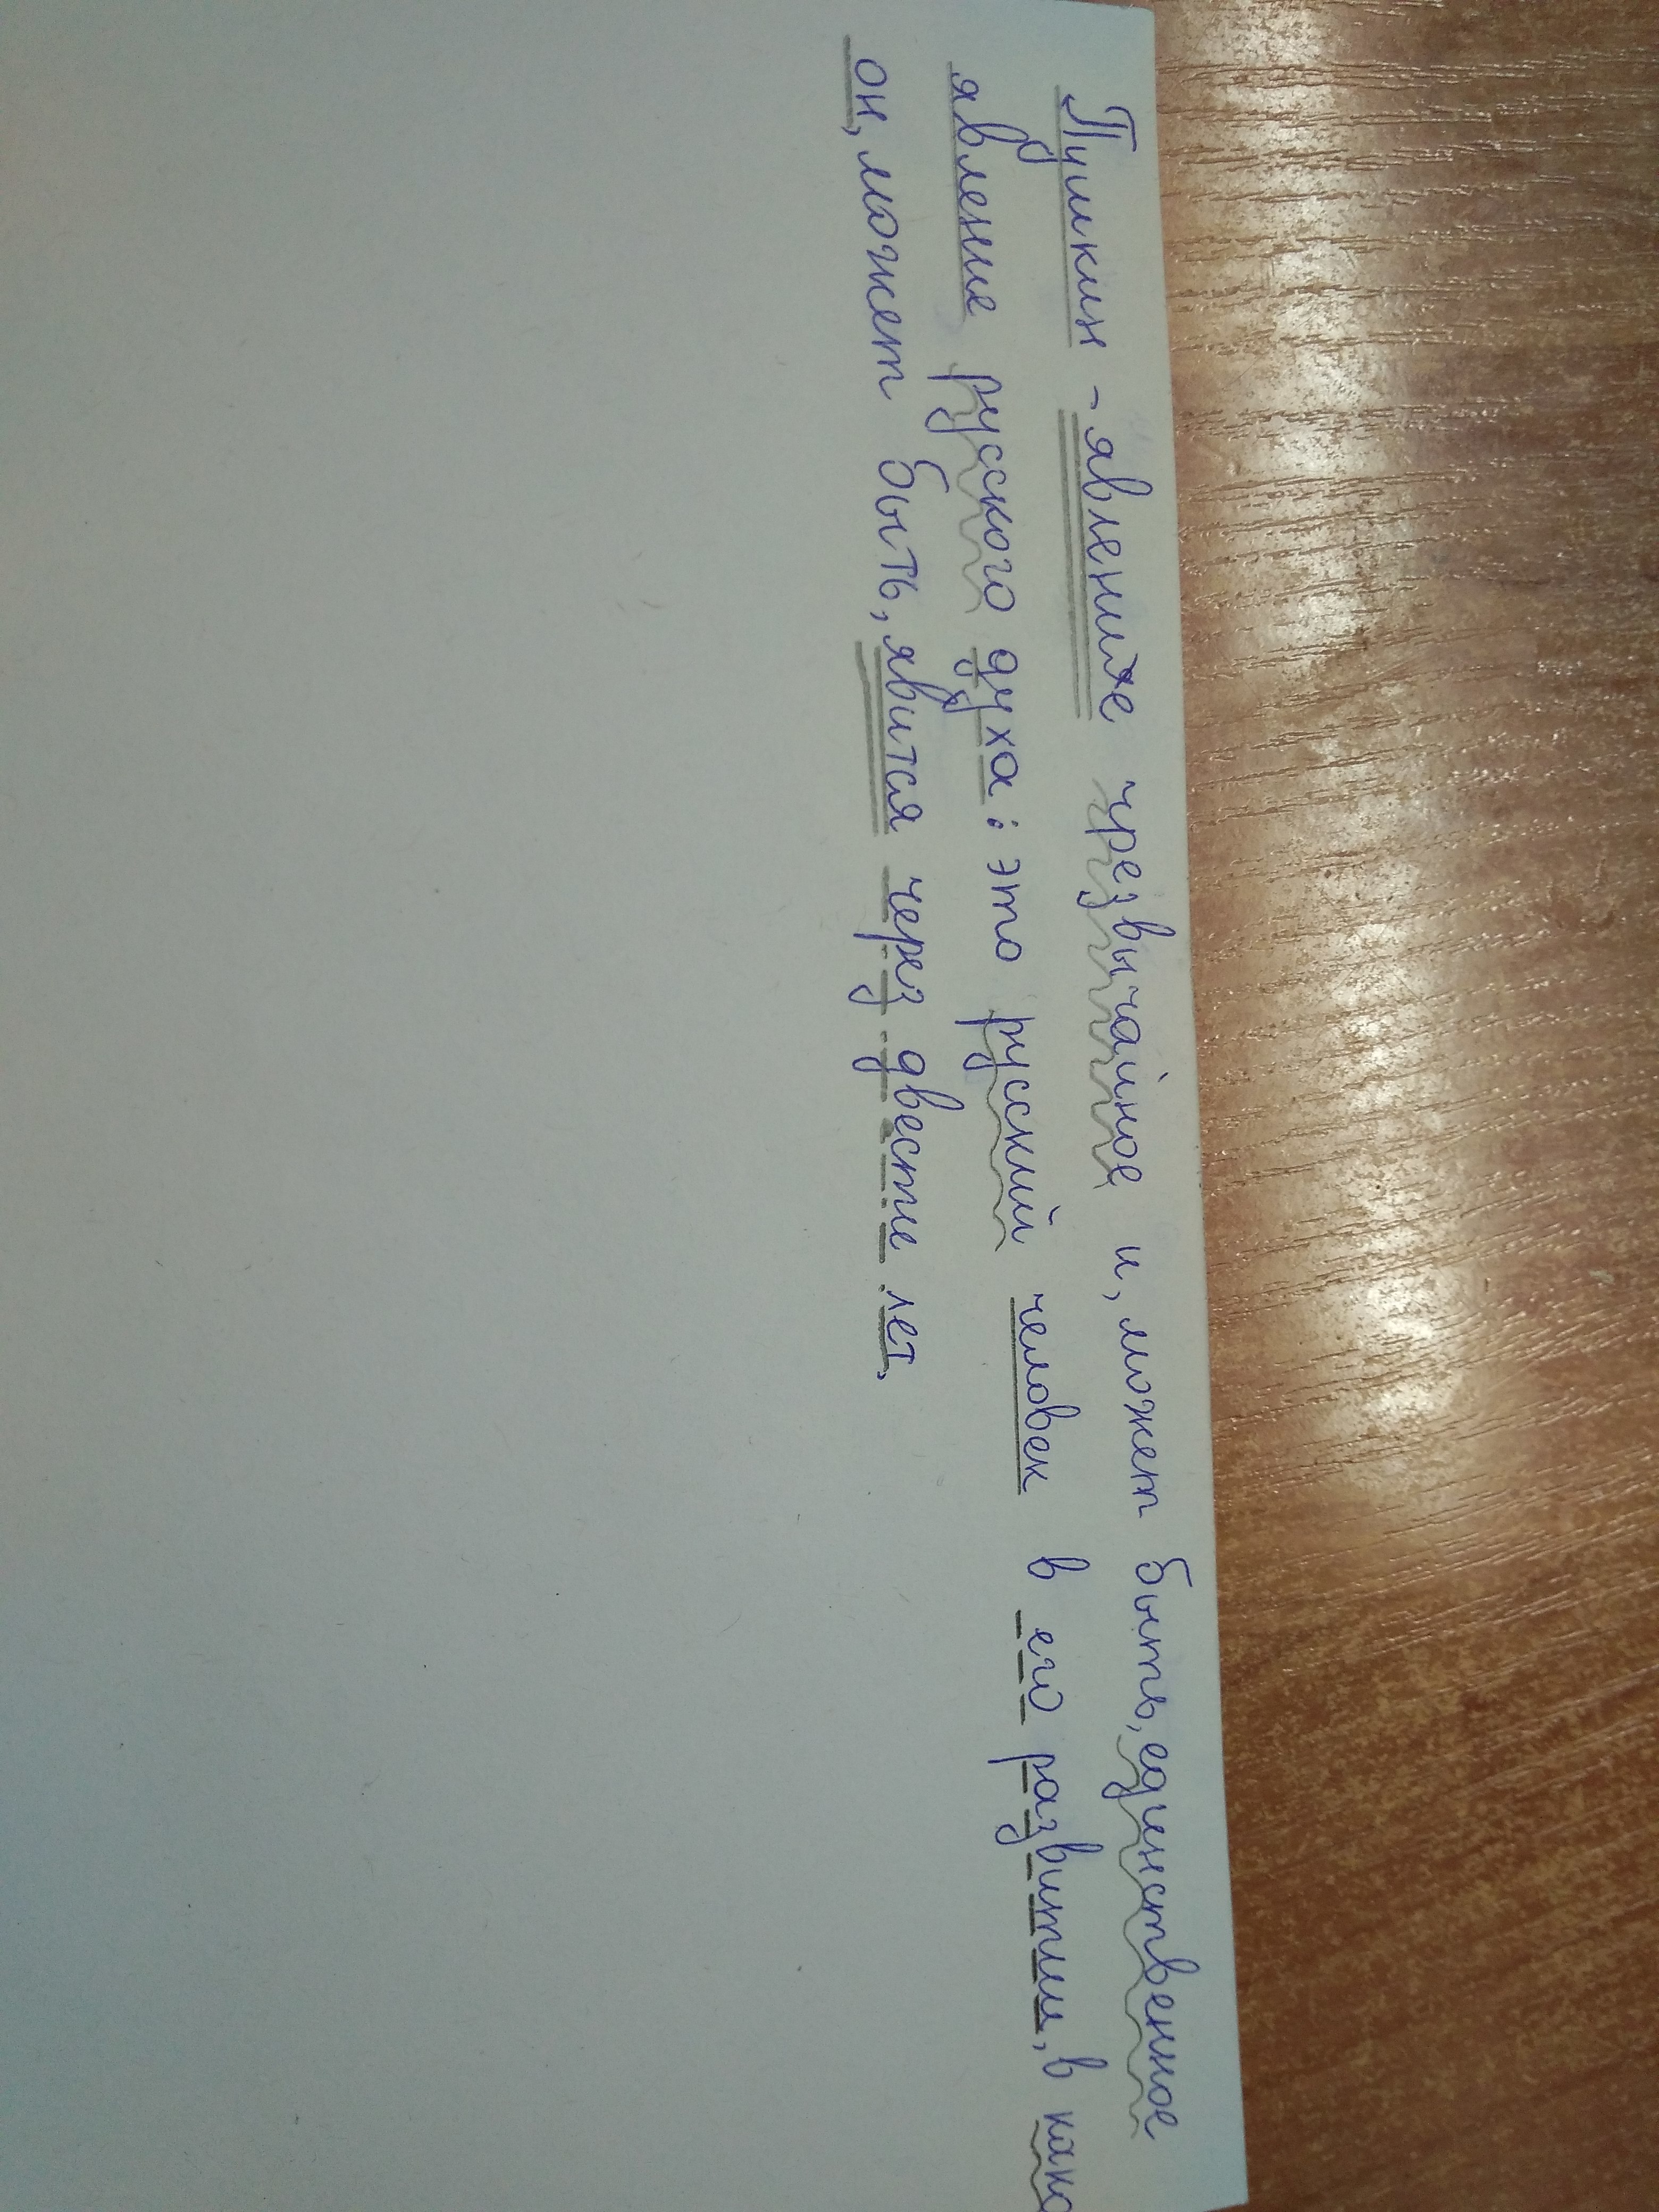 Пушкин - явление чрезвычайное и, может быть, единственное
явление русского духа: это русский человек в его развитии, в како
он, может быть, явится через двести лет.